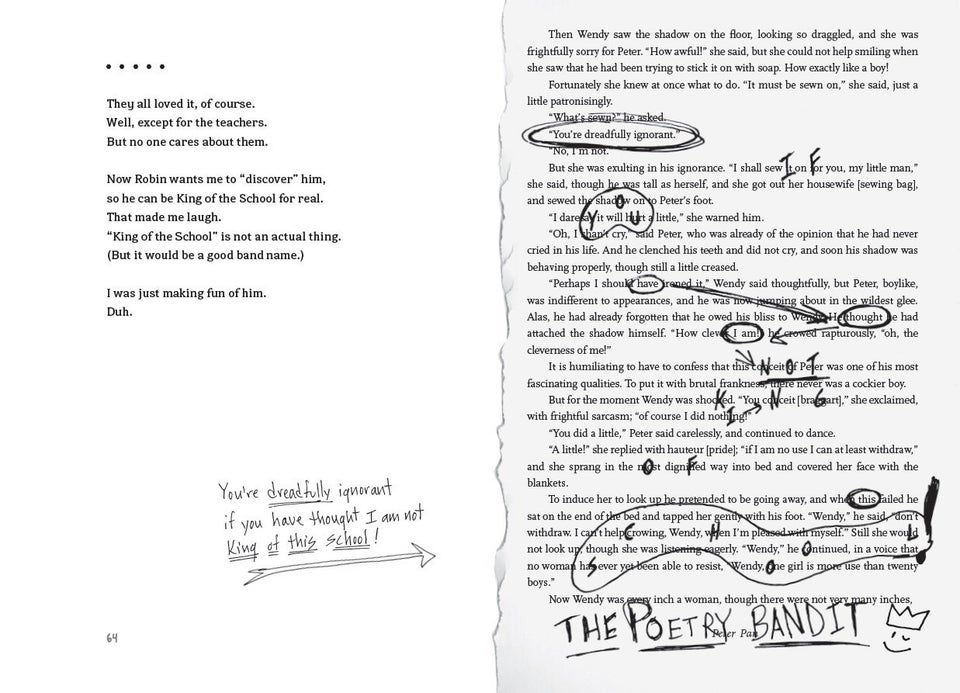 They all loved it, of course.
Well, except for the teachers.
But no one cares about them.
Now Robin wants me to “discover” him,
so he can be King of the School for real.
That made me laugh.
“King of the School” is not an actual thing.
(But it would be a good band name.)
I was just making fun of him.
Duh.
You're dreadfully ignorant
if you have thought I am not
King of this school!
64
Then Wendy saw the shadow on the floor, looking so draggled, and she was
frightfully sorry for Peter. “How awful!” she said, but she could not help smiling when
she saw that he had been trying to stick it on with soap. How exactly like a boy!
Fortunately she knew at once what to do. “It must be sewn on,” she said, just a
little patronisingly.
“What's sewn?” he asked.
“You're dreadfully ignorant.”
“No, I'm not.”
But she was exulting in his ignorance. “I shall sew it on for you, my little man,”
I F
she said, though he was tall as herself, and she got out her housewife [sewing bag],
and sewed the shadow on to Peter's foot.
“I daresay it will hurt a little,” she warned him.
YOU
“Oh, I shan't cry,” said Peter, who was already of the opinion that he had never
cried in his life. And he clenched his teeth and did not cry, and soon his shadow was
behaving properly, though still a little creased.
“Perhaps I should have ironed it,” Wendy said thoughtfully, but Peter, boylike,
was indifferent to appearances, and he was now jumping about in the wildest glee.
Alas, he had already forgotten that he owed his bliss to Wendy. He thought he had
attached the shadow himself. “How clever I am!” he crowed rapturously, “oh, the
cleverness of me!”
It is humiliating to have to confess that this conceit of Peter was one of his most
NOT
fascinating qualities. To put it with brutal frankness, there never was a cockier boy.
But for the moment Wendy was shocked. “You conceit [braggart],” she exclaimed,
KING
with frightful sarcasm; “of course I did nothing!”
“You did a little,” Peter said carelessly, and continued to dance.
“A little!” she replied with hauteur [pride]; “if I am no use I can at least withdraw,”
and she sprang in the most dignified way into bed and covered her face with the
O F
blankets.
To induce her to look up he pretended to be going away, and when this failed he
sat on the end of the bed and tapped her gently with his foot. “Wendy,” he said, “don't
withdraw. I can't help crowing, Wendy, when I'm pleased with myself.” Still she would
not look up, though she was listening eagerly. “Wendy,” he continued, in a voice that
no woman has ever yet been able to resist, “Wendy, one girl is more use than twenty
SCHOOL!
boys.”
Now Wendy was every inch a woman, though there were not very many inches,
Peter Pan
THE POETRY BANDIT